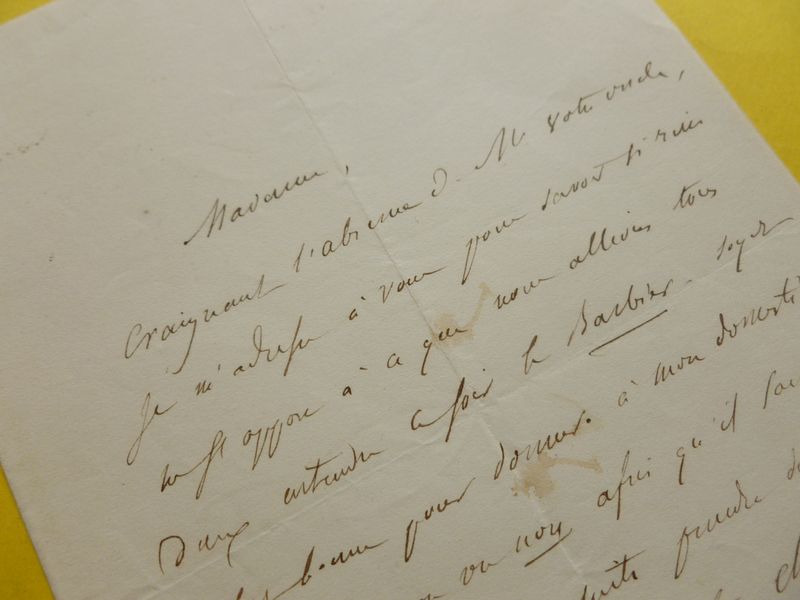 Madame,
Craignant l'absence de Mr votre oncle,
Je m'adresse à vous pour savoir si rien
ne s'est opposé à ce que nous allions tous
deux entendre ce soir le Barbier. Soyez
bonne pour donner à mon domesti
ou non afin qu'il
prendre